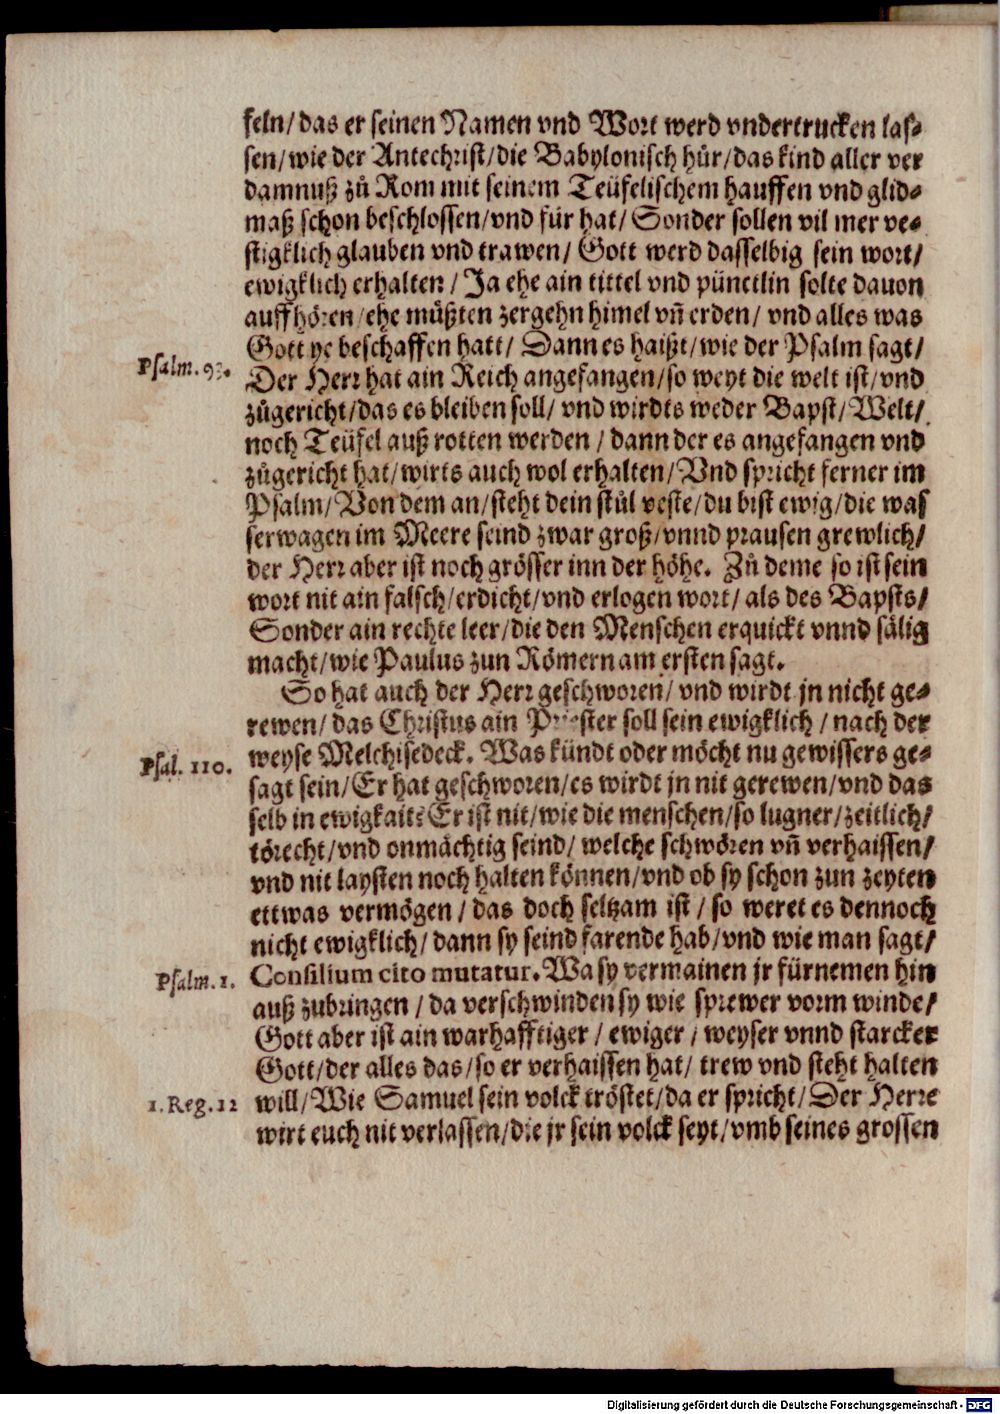 feln/das er seinen Namen vnd Wort werd vndertrucken las⸗
sen/wie der Antechrist/die Babylonisch hůr/das kind aller ver
damnuß zů Rom mit seinem Teüfelischem hauffen vnd glid⸗
maß schon beschlossen/vnd für hat/Sonder sollen vil mer ve⸗
stigklich glauben vnd trawen/Gott werd dasselbig sein wort/
ewigklich erhalten/Ja ehe ain tittel vnd pünctlin solte dauon
auffhören/ehe müßten zergehn himel vñ erden/vnd alles was
Gott ye beschaffen hatt/Dann es haißt/wie der Psalm sagt/
Psalm. 93.
Der Herr hat ain Reich angefangen/so weyt die welt ist/vnd
zůgericht/das es bleiben soll/vnd wirdts weder Bapst/Welt/
noch Teüfel auß rotten werden/dann der es angefangen vnd
zůgericht hat/wirts auch wol erhalten/Vnd spricht ferner im
Psalm/Von dem an/steht dein stůl veste/du bist ewig/die was
serwagen im Meere seind zwar groß/vnnd prausen grewlich/
der Herr aber ist noch grösser inn der höhe. Zů deme so ist sein
wort nit ain falsch/erdicht/vnd erlogen wort/als des Bapsts/
Sonder ain rechte leer/die den Menschen erquickt vnnd sälig
macht/wie Paulus zun Römern am ersten sagt.
So hat auch der Herr geschworen/vnd wirdt jn nicht ge⸗
rewen/das Christus ain Priester soll sein ewigklich/nach der
Psal. 110.
weyse Melchisedeck. Was kündt oder möcht nu gewissers ge⸗
sagt sein/Er hat geschworen/es wirdt jn nit gerewen/vnd das
selb in ewigkait? Er ist nit/wie die menschen/so lugner/zeitlich/
törecht/vnd onmächtig seind/welche schwören vñ verhaissen/
vnd nit laysten noch halten können/vnd ob sy schon zun zeyten
ettwas vermögen/das doch seltzam ist/so weret es dennoch
nicht ewigklich/dann sy seind farende hab/vnd wie man sagt/
Psalm. 1.
Consilium cito mutatur. Wa sy vermainen jr fürnemen hin
auß zubringen/da verschwinden sy wie sprewer vorm winde/
Gott aber ist ain warhafftiger/ewiger/weyser vnnd starcker
Gott/der alles das/so er verhaissen hat/trew vnd steht halten
1. Reg. 12
will/Wie Samuel sein volck tröstet/da er spricht/Der Herre
wirt euch nit verlassen/die jr sein volck seyt/vmb seines grossen
Digitalisierung gefördert durch die Deutsche Forschungsgemeinschaft - DFG